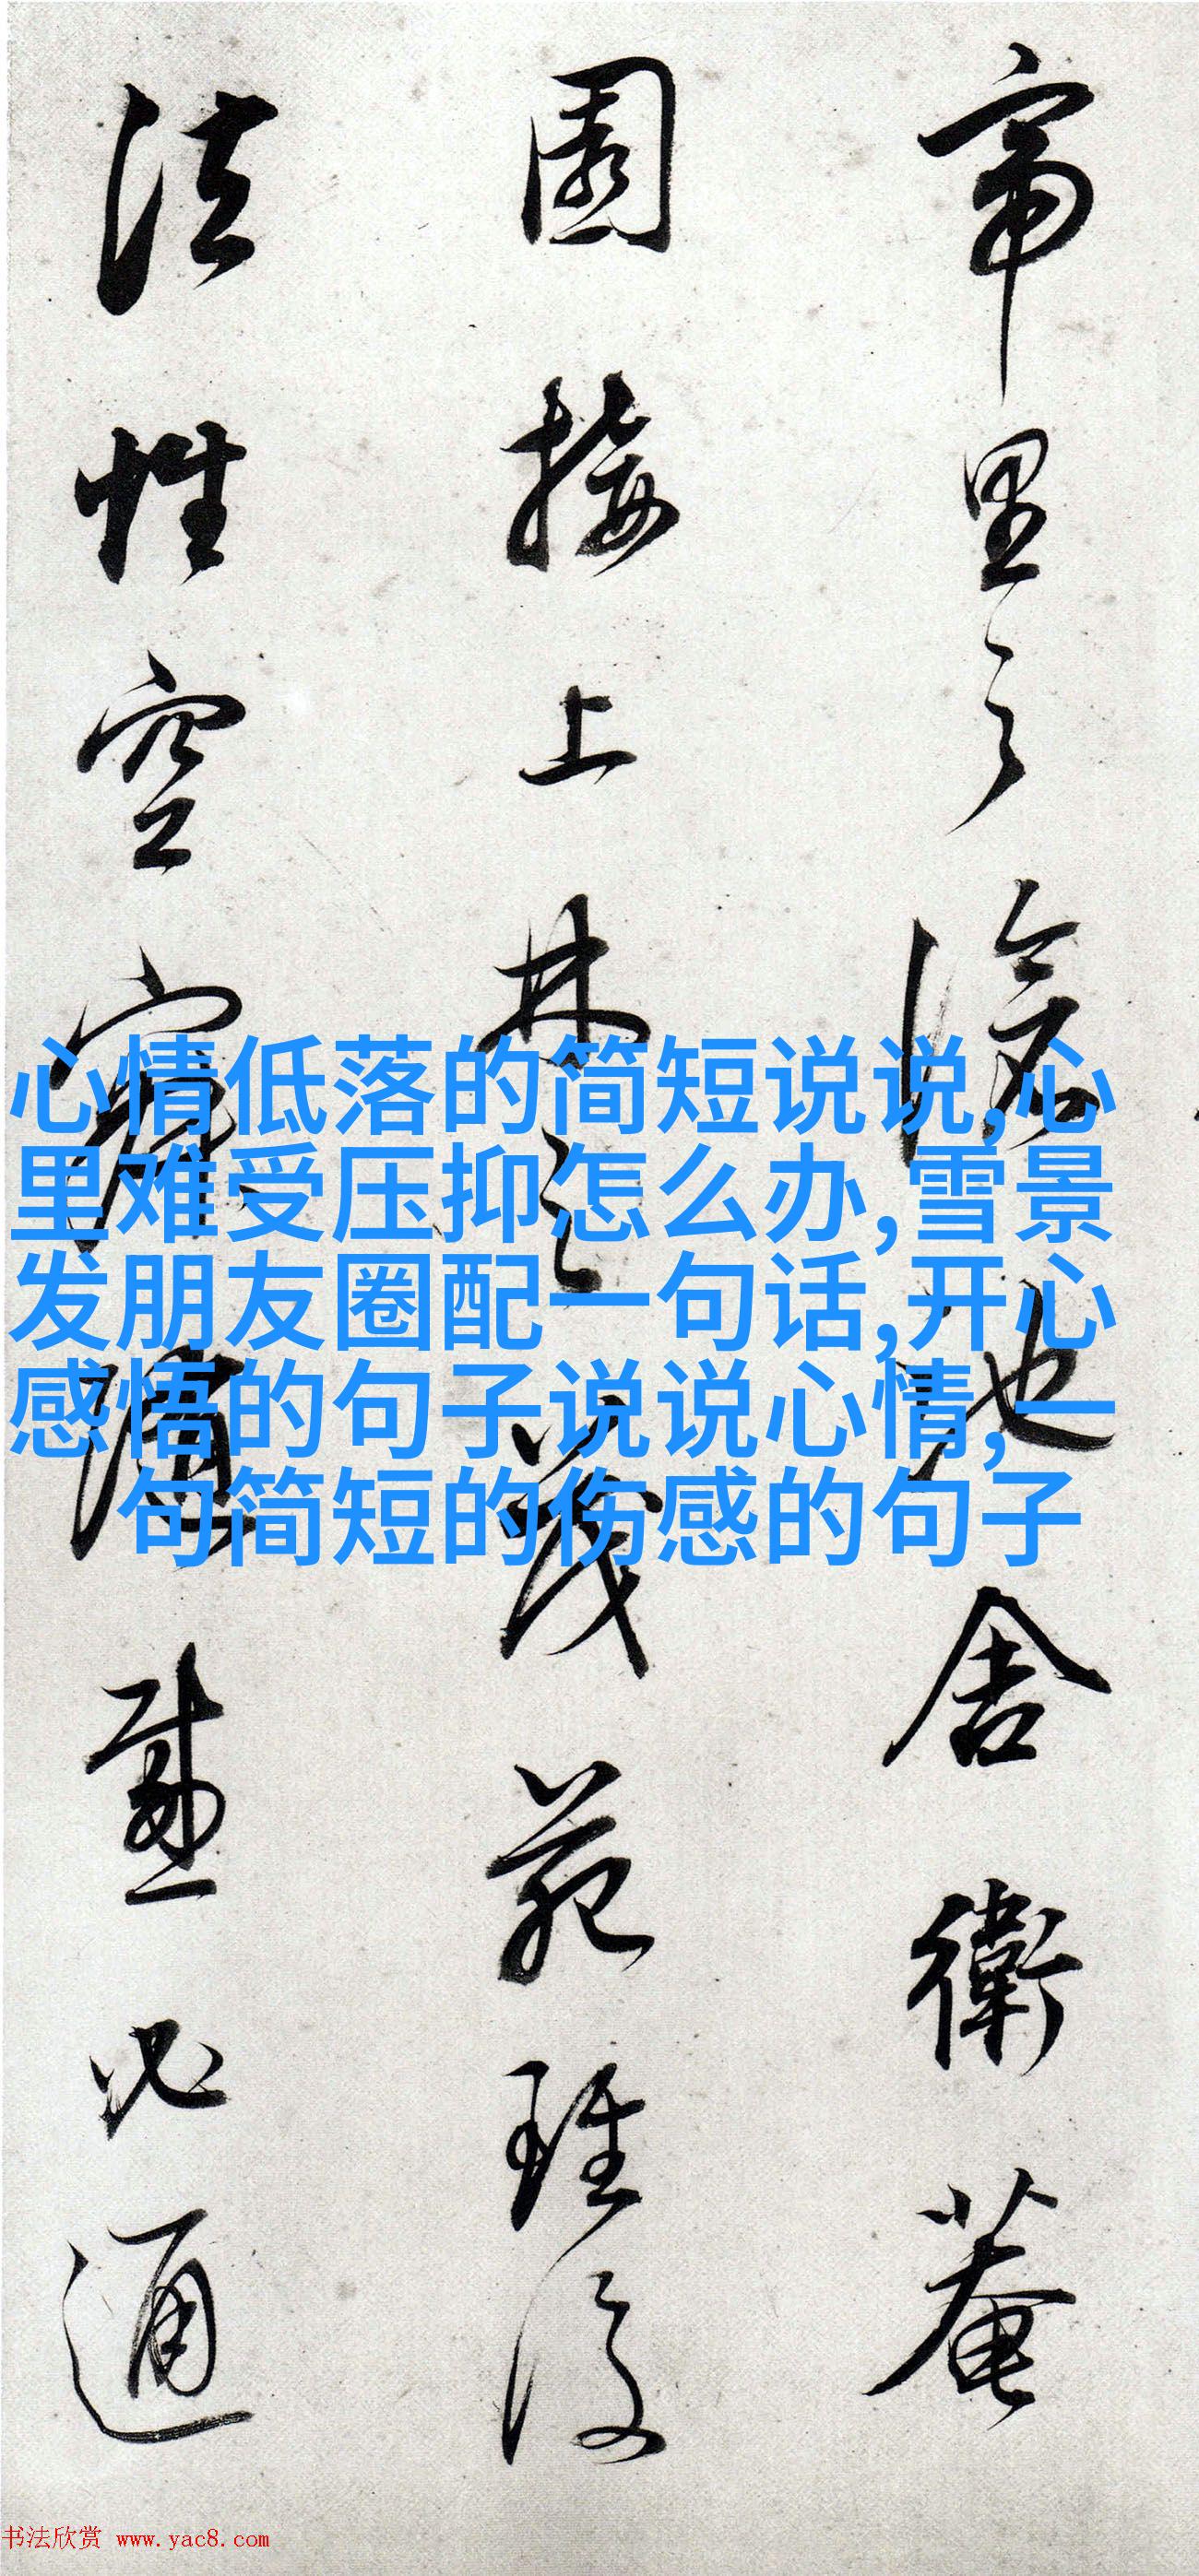 帝里之滄池也舍衛菴
園接上林之茂苑雖復
法性空寂隨感必通
心情低落的简短说说,心
里难受压抑怎么办,雪景
发朋友圈配一句话,开心
感悟的句子说说心情,一
句简短的伤感的句子
书法欣赏 www.yac8.com